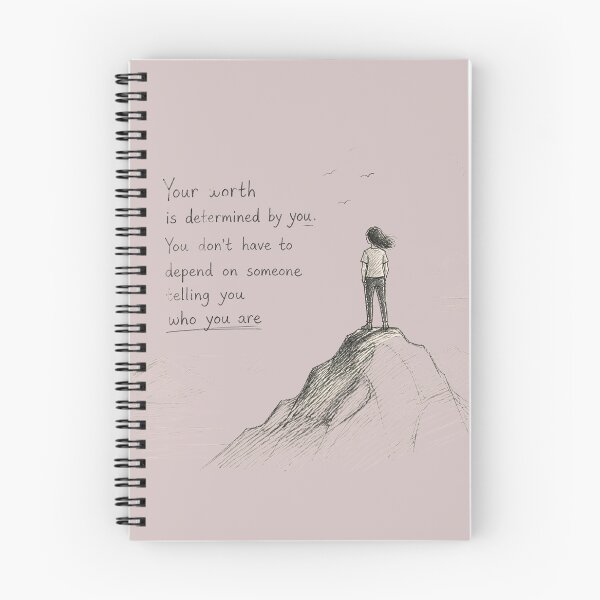 Your worth
is determined by you.
You don't have to
depend on someone
telling you
who you are